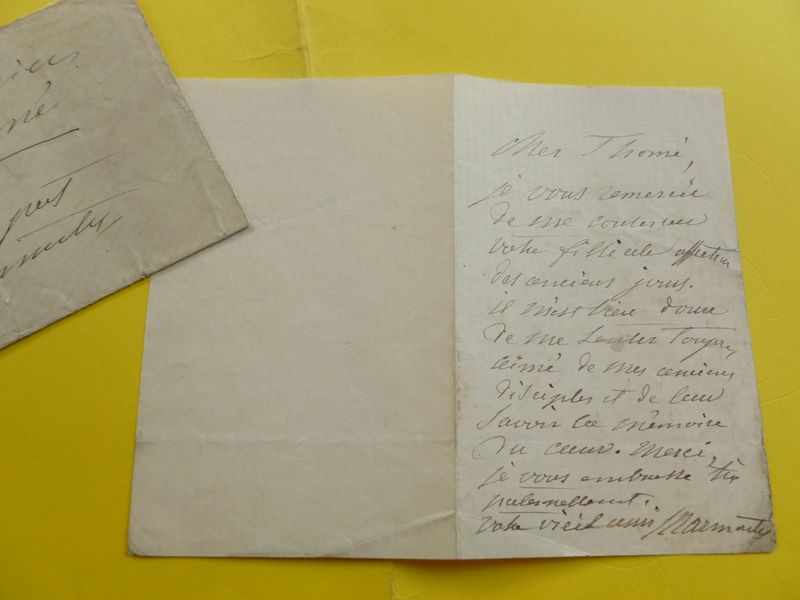 cher Thomé,
je vous remercie
de me conserver
votre filliale affection
des anciens jours.
il m'est bien doux
de me sentir toujours
aimé de mes anciens
disciples et de leur
savoir la mémoire
du cœur. Merci,
je vous embrasse très
paternellement.
votre vieil ami Marmontel